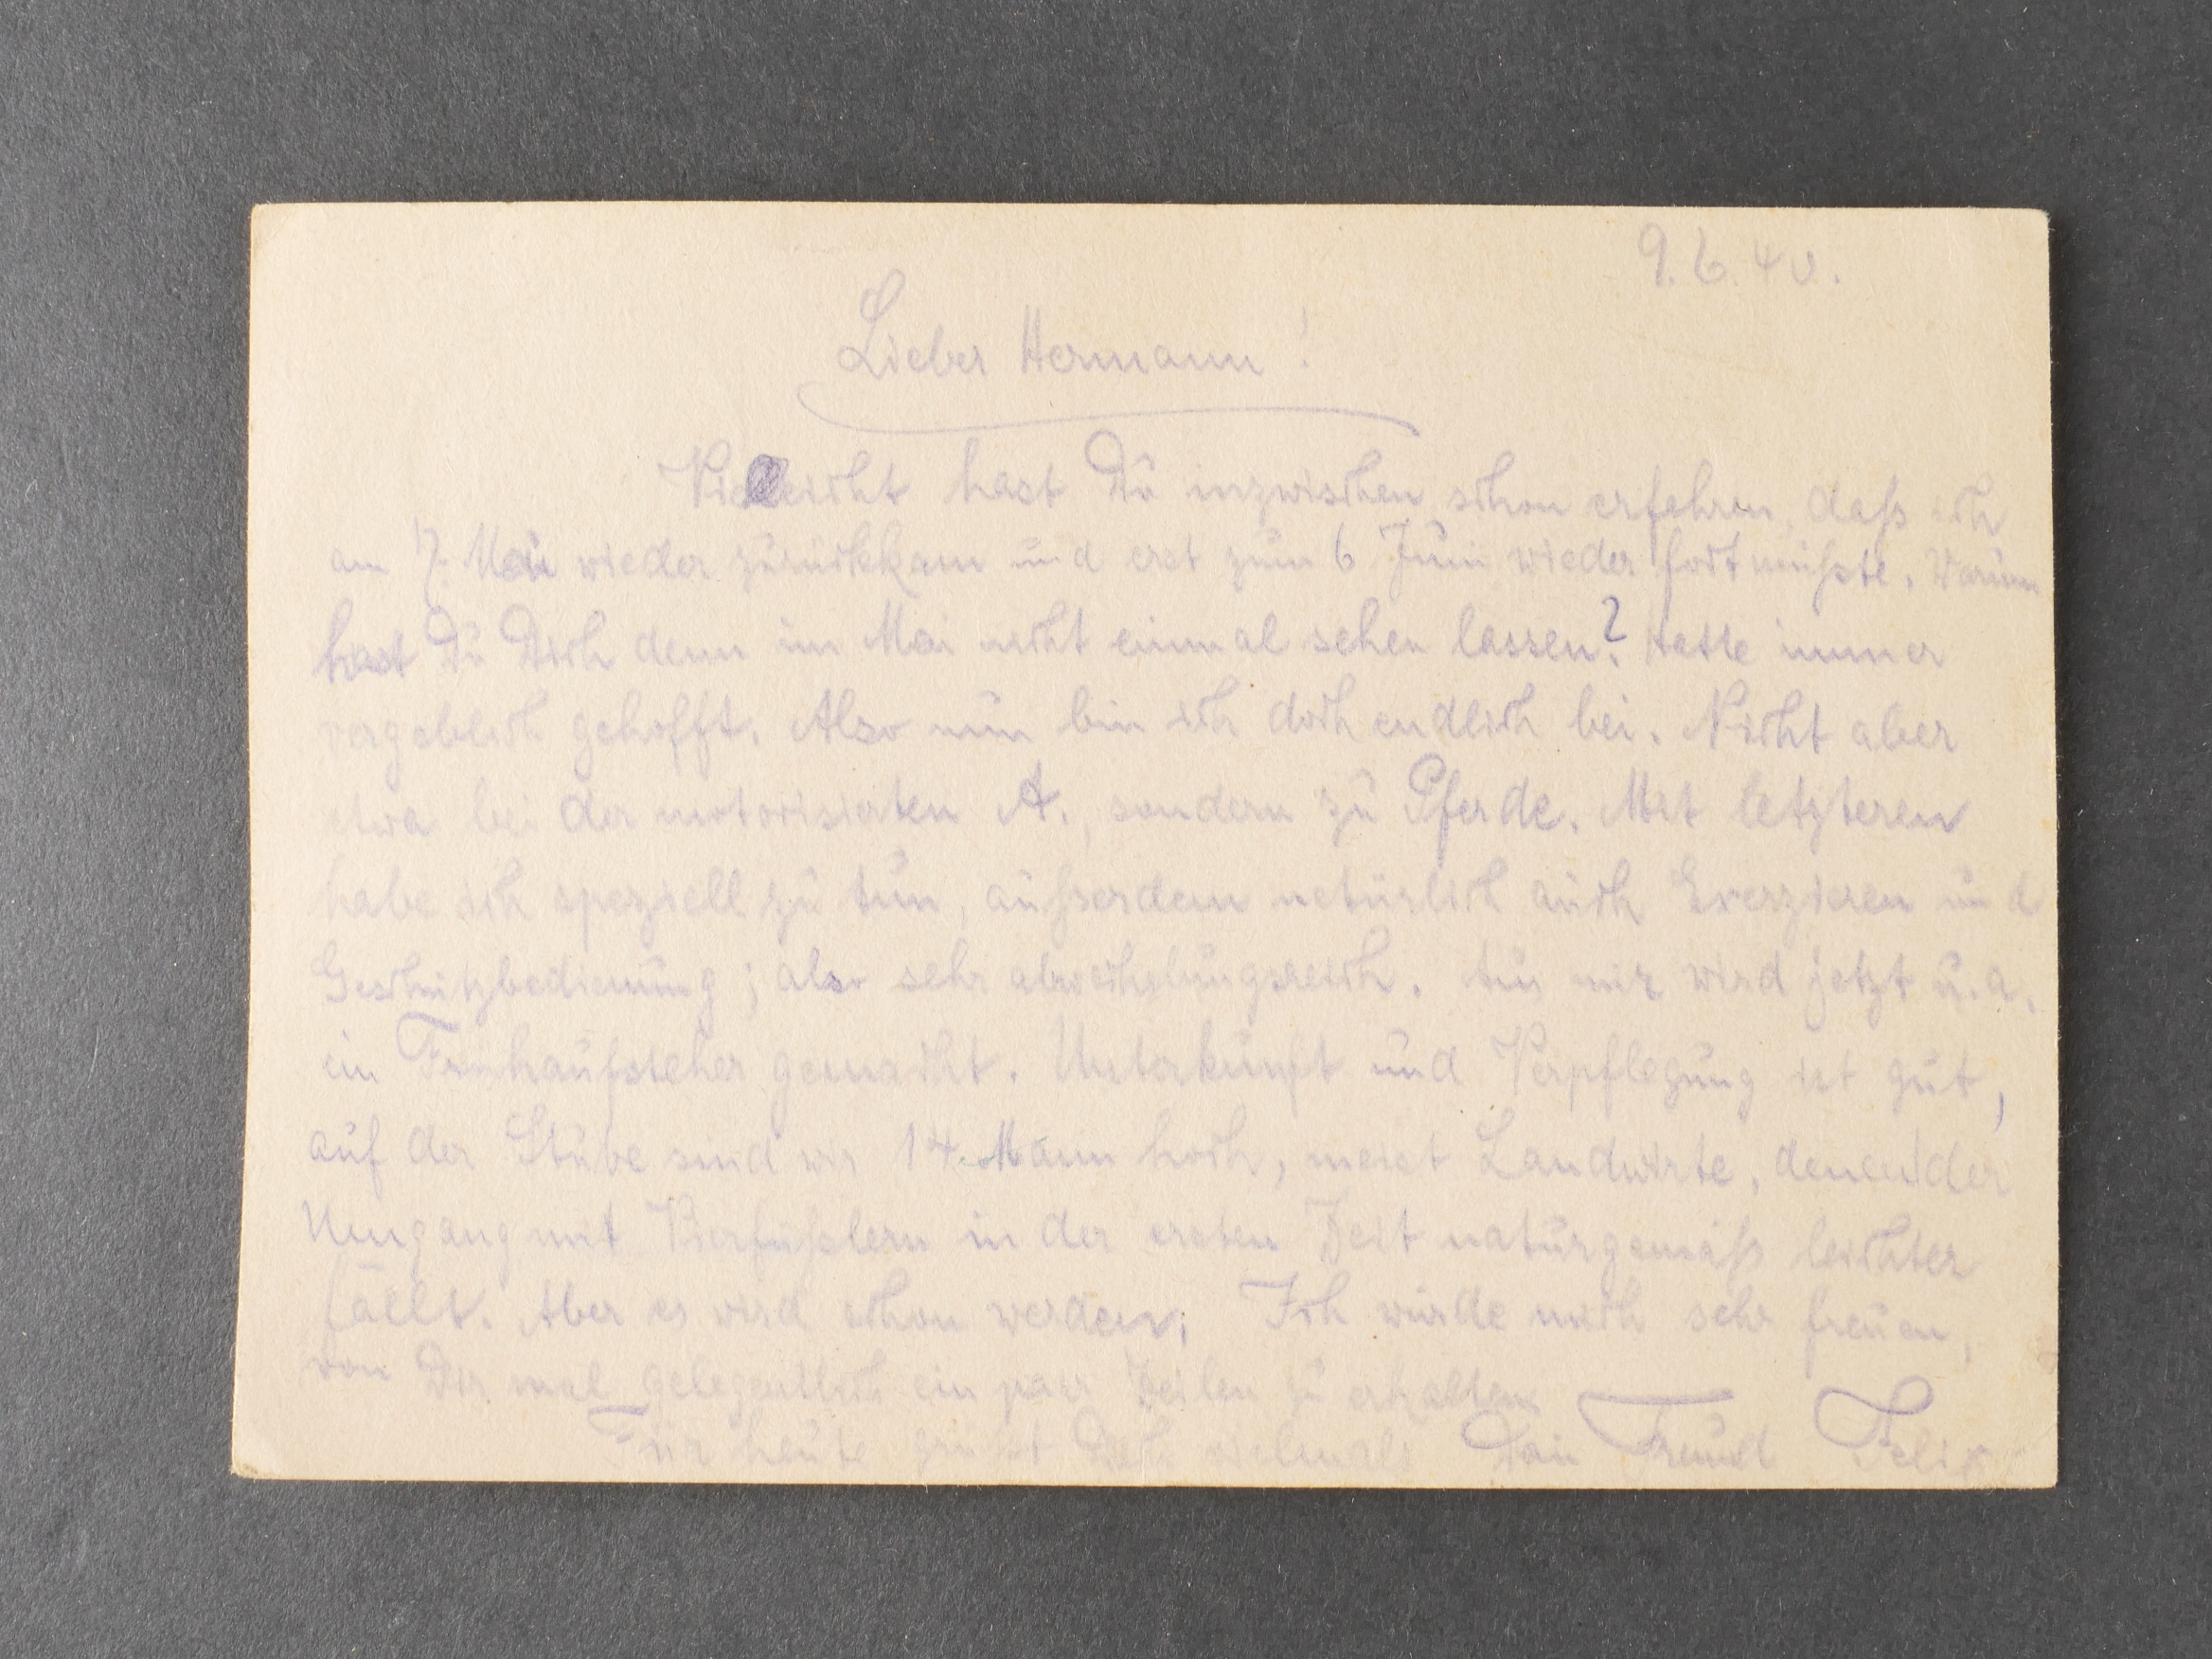 9.6.40.
Lieber Hermann!
Vielleicht hast Du inzwischen schon erfahren, daß ich
am 7. Mai wieder zurückkam und erst zum 6 Juni wieder fort mußte. Warum
hast Du Dich denn im Mai nicht einmal sehen lassen? Hatte immer
vergeblich gehofft. Also nun bin ich doch endlich bei. Nicht aber
etwa bei der motorisierten A., sondern zu Pferde. Mit letzteren
habe ich speziell zu tun, außerdem natürlich auch Exerzieren und
Geschützbedienung; also sehr abwechslungsreich. Aus mir wird jetzt u.a.
ein Frühaufsteher gemacht. Unterkunft und Verpflegung ist gut,
auf der Stube sind wir 14 Mann hoch, meist Landwirte, denen der
Umgang mit Vierfüßlern in der ersten Zeit naturgemäß leichter
fällt. Aber es wird schon werden. Ich würde mich sehr freuen,
von Dir mal gelegentlich ein paar Zeilen zu erhalten
Für heute grüßt Dich vielmals Dein Freund Felix